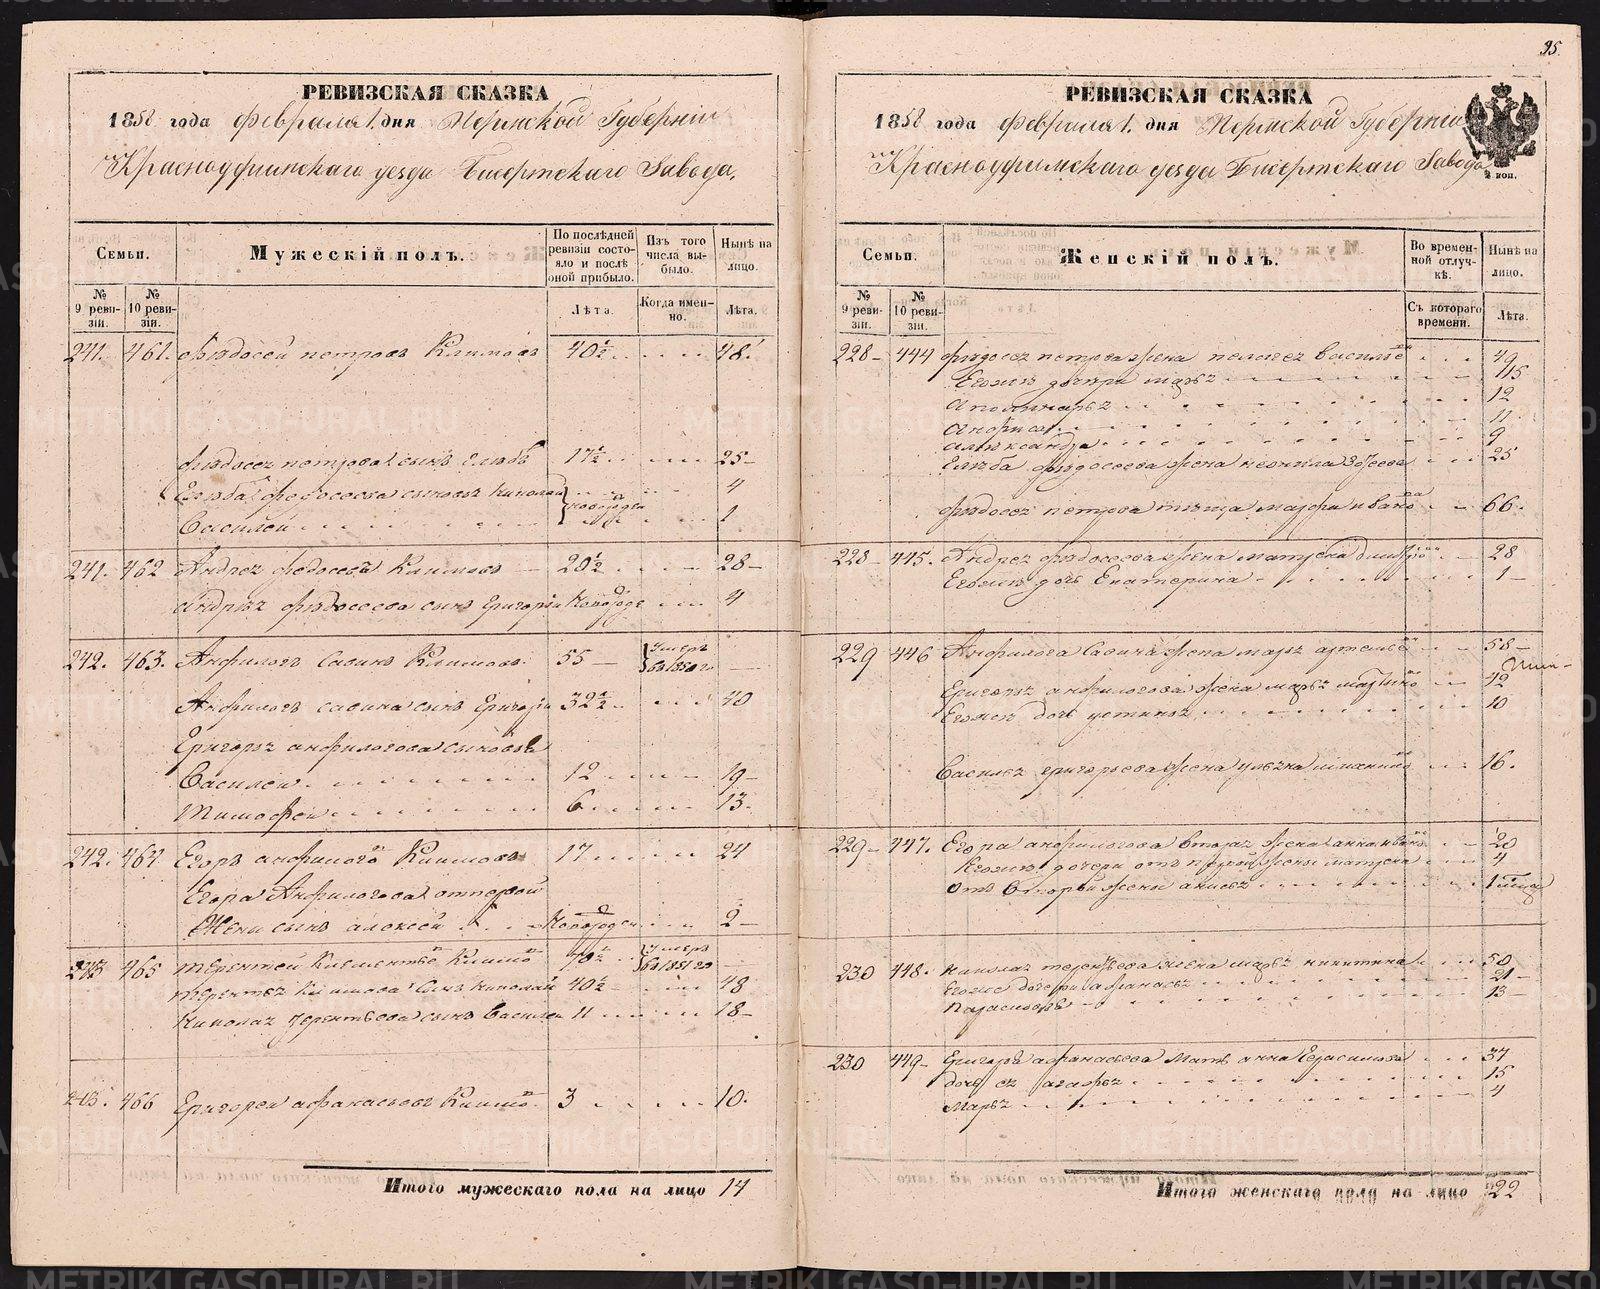 РЕВИЗСКАЯ СКАЗКА
1858 года февраля 1. дня Пермской Губерніи
Красноуфимскаго уезда Бисертскаго Завода.
Семьи.
Мужескій полъ.
По послѣдней ревизіи состояло и послѣ оной прибыло.
Изъ того числа выбыло.
Нынѣ на лицо.
№ 9 ревизіи.
№ 10 ревизіи.
Лѣта.
Когда именно.
Лѣта.
241. 461. Фѣдосей петровъ Климовъ 40½ 48.
Фѣдосеа петрова сынъ Глѣбъ 17½ 25
Глѣба федосеева сыновья Николай 4
новорожден
Василей 1
241. 462 Андрей федосеевъ Климовъ 20½ 28
Андрѣя фѣдосеева сынъ Григорій Новорожд 4
242. 463. Анфилогъ Савинъ Климовъ 55 умеръ въ 1850 го
Анфилога савина сынъ Григорій 32½ 40
Григорья анфилогова сыновья
Василей 12 19
Тимофей 6 13.
242. 464 Егоръ анфилоговъ Климовъ 17 24
Егора Анфилогова отпервой
Жены сынъ алексей Новорожден 2
243 465 Терентей Климентьевъ Климовъ 70½ умеръ въ 1851 го
Терентья Климова сынъ Николай 40½ 48
Николая терентьева сынъ Василей 11 18
243. 466 Григорей афанасьевъ Климовъ 3 10.
Итого мужескаго пола на лицо 14
95.
РЕВИЗСКАЯ СКАЗКА
1858 года февраля 1. дня Пермской Губерніи
Красноуфимскаго уезда Бисертскаго Завода
Семьи.
Женскій полъ.
Во временной отлучкѣ.
Нынѣ на лицо.
№ 9 ревизіи.
№ 10 ревизіи.
Съ котораго времени.
Лѣта.
228 444 фѣдосея петрова жена пелагея василье 49
Егожъ дочери марья 15
Аполинарья 12
Анфиса 11
александра 9
Глѣба фѣдосеева жена неонила 25
фѣдосея петрова теща марфа ивано 66.
228 445. Андрея фѣдосеева жена матрена дмитріе 28
Егожъ дочь Екатерина 1
229 446 Анфилога Савина жена марья артемье 58
Григорья анфилогова жена марья мартыно 42
Егожъ дочь устинья 10
Василья григорьева жена ульяна 16.
229 447. Егора анфилогова вторая жена анна ивано 20
Егожъ дочери отъ первой жены матрена 4
Отъ второй жены анисья 1
230 448. Николая терентьева жена марья никитина 50
Егоже дочери афанасья 21
Парасковья 13
230 449 Григорья афанасьева Мать анна Герасимова 37
дочь ея агафья 15
Марья 4
Итого женскаго пола на лицо 22
METRIKI.GASO-URAL.RU